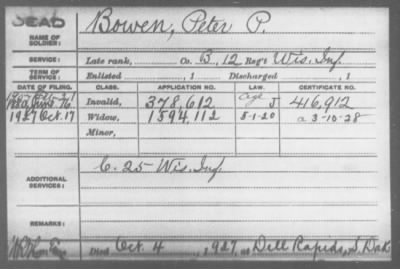 DEAD
NAME OF SOLDIER: Bowen, Peter P.
SERVICE: Late rank, Co. B, 12 Reg't Wis. Inf.
TERM OF SERVICE: Enlisted , 1 Discharged , 1
DATE OF FILING. CLASS. APPLICATION NO. LAW. CERTIFICATE NO.
Invalid, 378,612 age J 416,912
1927 Oct. 17 Widow, 1594,112 5-1-20 a 3-10-28
Minor,
ADDITIONAL SERVICES: C. 25 Wis. Inf.
REMARKS:
Died Oct. 4, 1927, at Dell Rapids, S. Dak